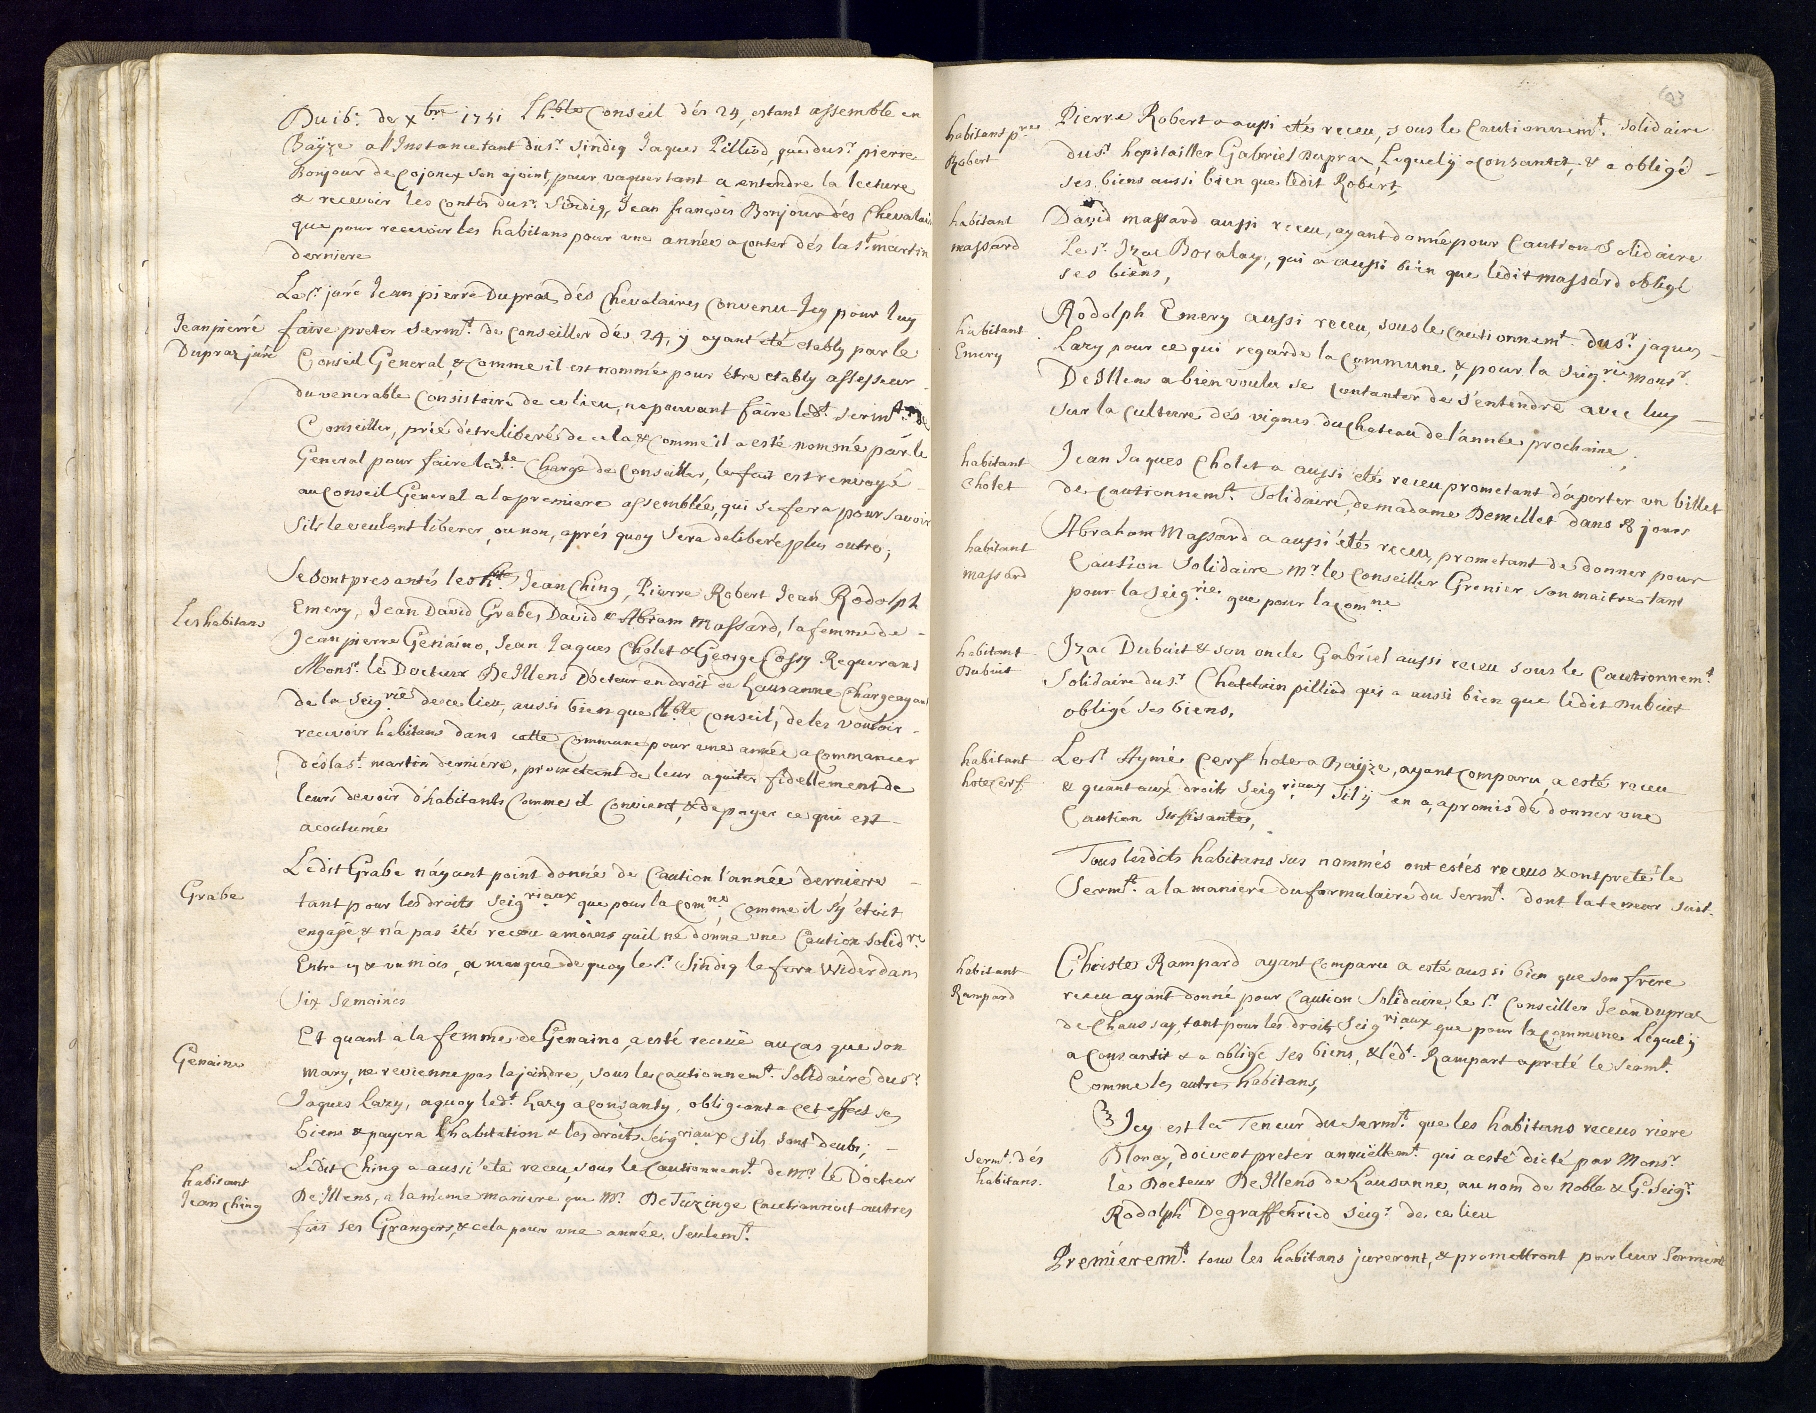 Du 16.e de Xbre 1751 Lh.ble Conseil dés 24, estant assemblé en
Baÿze a l'Instance tant du Sr. Sindiq Jaques Pilliod, que du Sr. pierre
Bonjour de Cojonex son ajoint, pour vaquer tant a entendre la lecture
& recevoir les contes du Sr. Sindiq, Jean françois Bonjour dés Chevalaires
que pour recevoir les habitans pour une année a conter dés la St. martin
derniere
Jean pierre
Dupraz juré
Le Sr. juré Jean pierre Dupraz dés Chevalaires Convenu Icy pour luy
faire preter serm.t de conseiller dés 24, ÿ ayant été etably par le
Conseil General, & comme il est nommé pour être etably assesseur
du venerable Consistoire de ce lieu, ne pouvant faire led.t serm.t de
Conseiller, prie d'etre liberé de cela & comme il a esté nommé par le
General pour faire lad.te Charge de Conseiller, le fait est renvoyé
au Conseil General a la premiere assemblée, qui se fera pour savoir
S'ils le veulent liberer, ou non, aprés quoy sera deliberé plus outre;
Les habitans
Se sont presantés les Jean Ching, Pierre Robert Jean Rodolph
Emery, Jean David Grabe, David & Abram Massard, la femme de
Jean pierre Genaino, Jean Jaques Cholet & George Cossy Requerans
Monsr. le Docteur De Illens Docteur en droit de Lausanne Chargeayant
de la Seig.rie de ce lieu, aussi bien que lh.ble Conseil, de les vouloir
recevoir habitans dans cette Commune pour une année a commancer
dés la St. martin derniére, prometant de leur aquiter fidellement de
leurs devoir d'habitants comme il Convient, & de payer ce qui est
acoutumé
Grabe
Ledit Grabe n'ayant point donné de Caution l'année derniere
tant pour les droits Seig.riaux que pour la Com.ne, comme il s'y étoit
engagé, & n'a pas été receu a moins qu'il ne donne une Caution Solid.re
Entre cy & un mois, a manque de quoy le Sr. Sindiq le fera Wider dans
Six Semaines
Genaine
Et quant a la femme de Genaino, a esté receüe au cas que son
mary, ne revienne pas la joindre, sous le cautionnem.t Solidaire du Sr.
Jaques Lazy, a quoy led.t Lazy a Consanty, obligeant a cet effect ses
biens & payera l'habitation & les droits Seig.riaux s'ils sont deubs;
habitant
Jean Ching
Ledit Ching a aussi été receu, sous le Cautionnem.t de Mr. le Docteur
De Illens, a la même maniere que Mr. De Tuzinge Cautionnoit autres
fois ses Grangers, & cela pour une année. Seulem.t
habitans p.rre
Robert
Pierre Robert a aussi eté receu, sous le Cautionnem.t Solidaire
du Sr. hopitailler Gabriel Dupraz, Lequel ÿ a consantit, & a obligé
ses biens aussi bien que ledit Robert,
habitant
massard
David massard aussi receu, ayant donné pour Caution Solidaire
Le Sr. Izac Boralay, qui a aussi bien que ledit massard obligé
ses biens,
habitant
Emery
Rodolph Emery aussi receu, sous le cautionnem.t du Sr. jaques
Lazy pour ce qui regarde la commune, & pour la Seig.rie Monsr.
De Illens a bien voulu se contanter de s'entendre avec luy
sur la culture dés vignes du Chateau de l'année prochaine;
habitant
Cholet
Jean Jaques Cholet a aussi eté receu prometant d'aporter un billet
de cautionnem.t Solidaire, de madame Demellet dans 8 jours
habitant
massard
Abraham Massard a aussi été receu, prometant de donner pour
Caution Solidaire Mr. le Conseiller Grenier son maitre tant
pour la Seig.rie que pour la Com.ne
habitant
Dubuit
Izac Dubuit & son oncle Gabriel aussi receu sous le Cautionnem.t
Solidaire du Sr. Chatelain pilliod qui a aussi bien que ledit Dubuit
obligé ses biens,
habitant
hote Cerf
Le Sr. Aymé Cerf hote a Baÿze, ayant comparu, a esté receu
& quant aux droits Seig.riaux s'il ÿ en a, a promis de donner une
Caution Sufisante,
Tous lesdits habitans sus nommés ont estés receus & ont preté le
Serm.t a la maniere du formulaire du serm.t dont la teneur suit.
habitant
Rampard
Christe Rampard ayant comparu a esté aussi bien que son frere
receu ayant donné pour Caution Solidaire le Sr. Conseiller Jean Dupraz
de Chaussay, tant pour les droits Seig.riaux que pour la Commune, Lequel ÿ
a Consantit & a obligé ses biens, & led.t Rampart a preté le serm.t
Comme les autres habitans,
Serm.t dés
habitans.
Icy est la Teneur du Serm.t que les habitans receus riere
Blonay, doivent preter annuëllem.t qui a esté dicté par Monsr.
le Docteur De Illens de Lausanne, au nom de Noble & G. Seigr.
Rodolph Degraffenried Seigr. de ce lieu
Premiérem.t tous les habitans jureront, & promettront par leur Serment